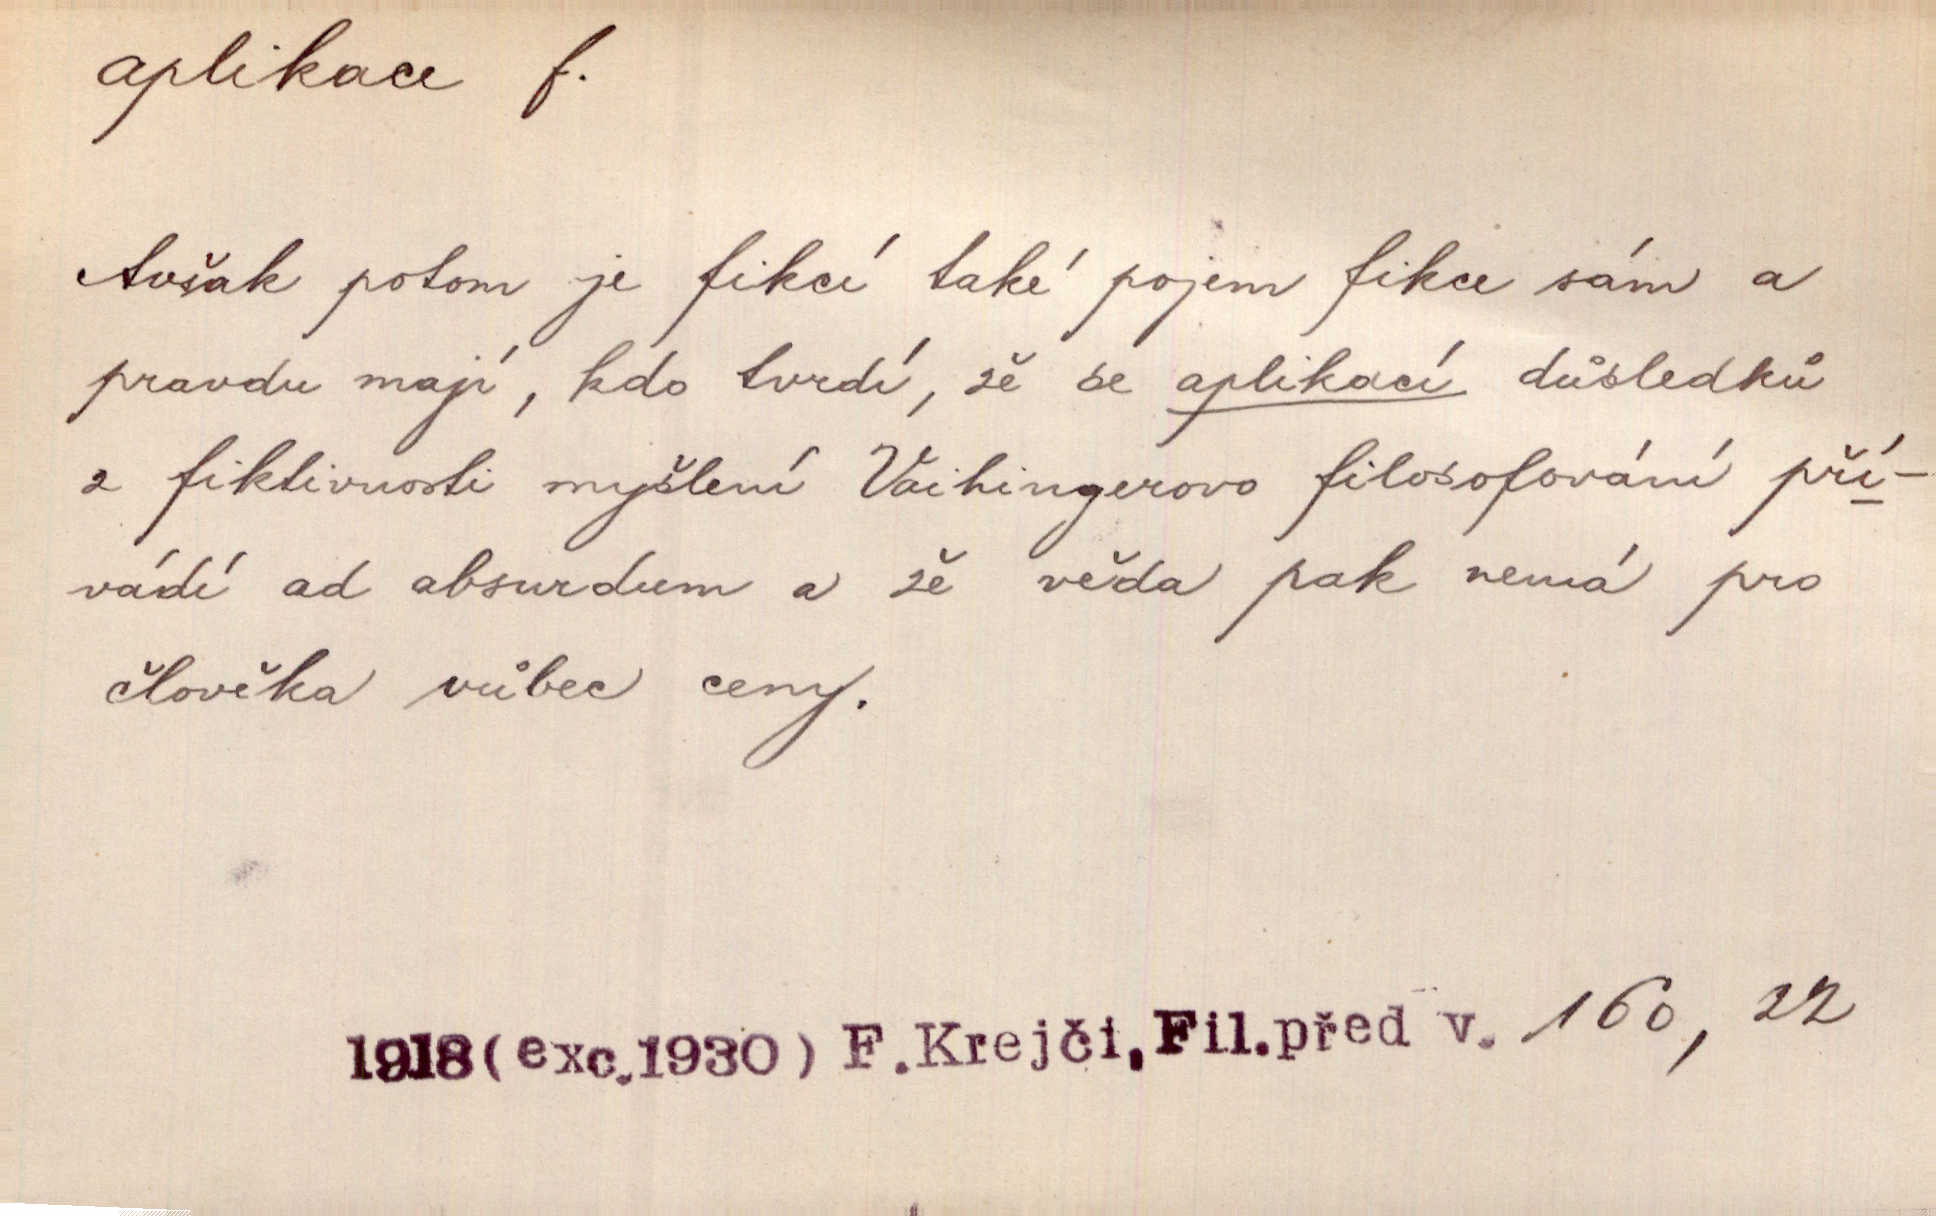 aplikace f.
Avšak potom je fikcí také pojem fikce sám a
pravdu mají, kdo tvrdí, že se aplikací důsledků
z fiktivnosti myšlení Vaihingerovo filosofování pří-
vádí ad absurdum a že věda pak nemá pro
člověka vůbec ceny.
1918(exc.1930) F.Krejčí,Fil.před v. 160, 22